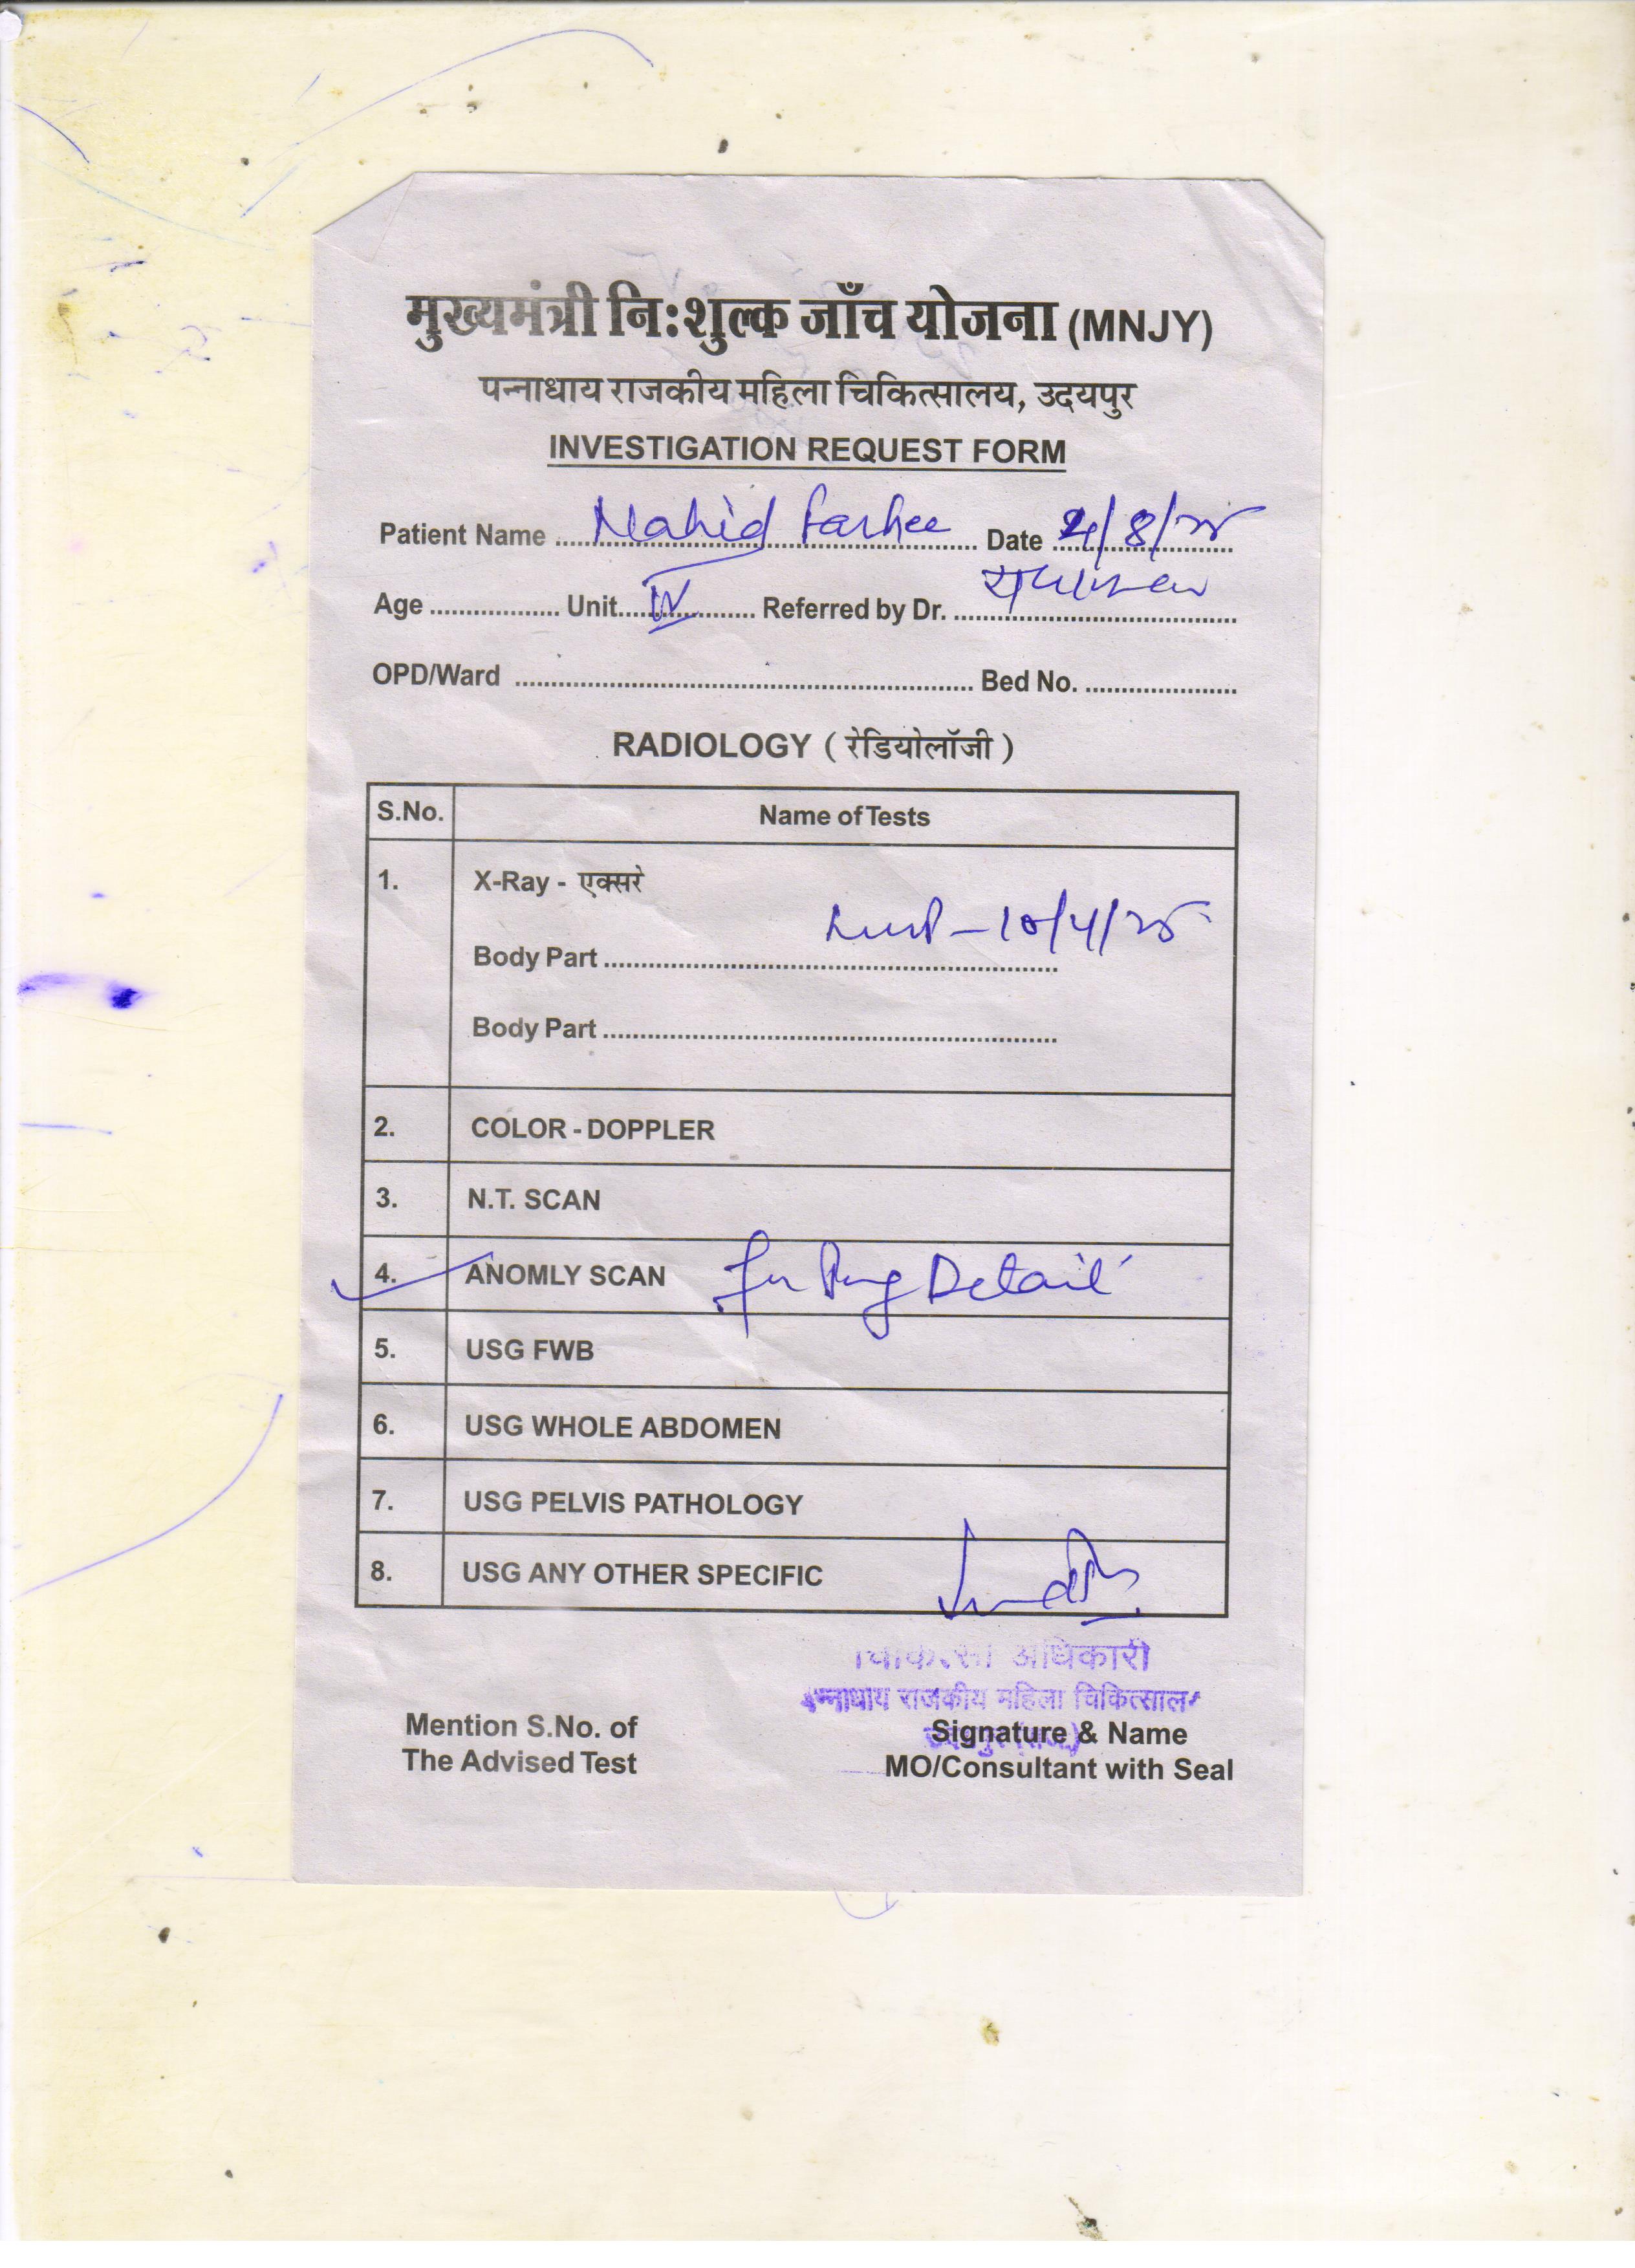 मुख्यमंत्री नि:शुल्क जाँच योजना (MNJY)
पन्नाधाय राजकीय महिला चिकित्सालय, उदयपुर
INVESTIGATION REQUEST FORM
Patient Name Nahid Date /8/25
Age Unit IV Referred by Dr.
OPD/Ward Bed No.
RADIOLOGY ( रेडियोलॉजी )
S.No. Name of Tests
1. X-Ray - एक्सरे
LMP - 10/4/25
Body Part
Body Part
2. COLOR - DOPPLER
3. N.T. SCAN
4. ANOMLY SCAN for Detail
5. USG FWB
6. USG WHOLE ABDOMEN
7. USG PELVIS PATHOLOGY
8. USG ANY OTHER SPECIFIC
अधिकारी
राजकीय महिला
Mention S.No. of
The Advised Test
Signature & Name
MO/Consultant with Seal